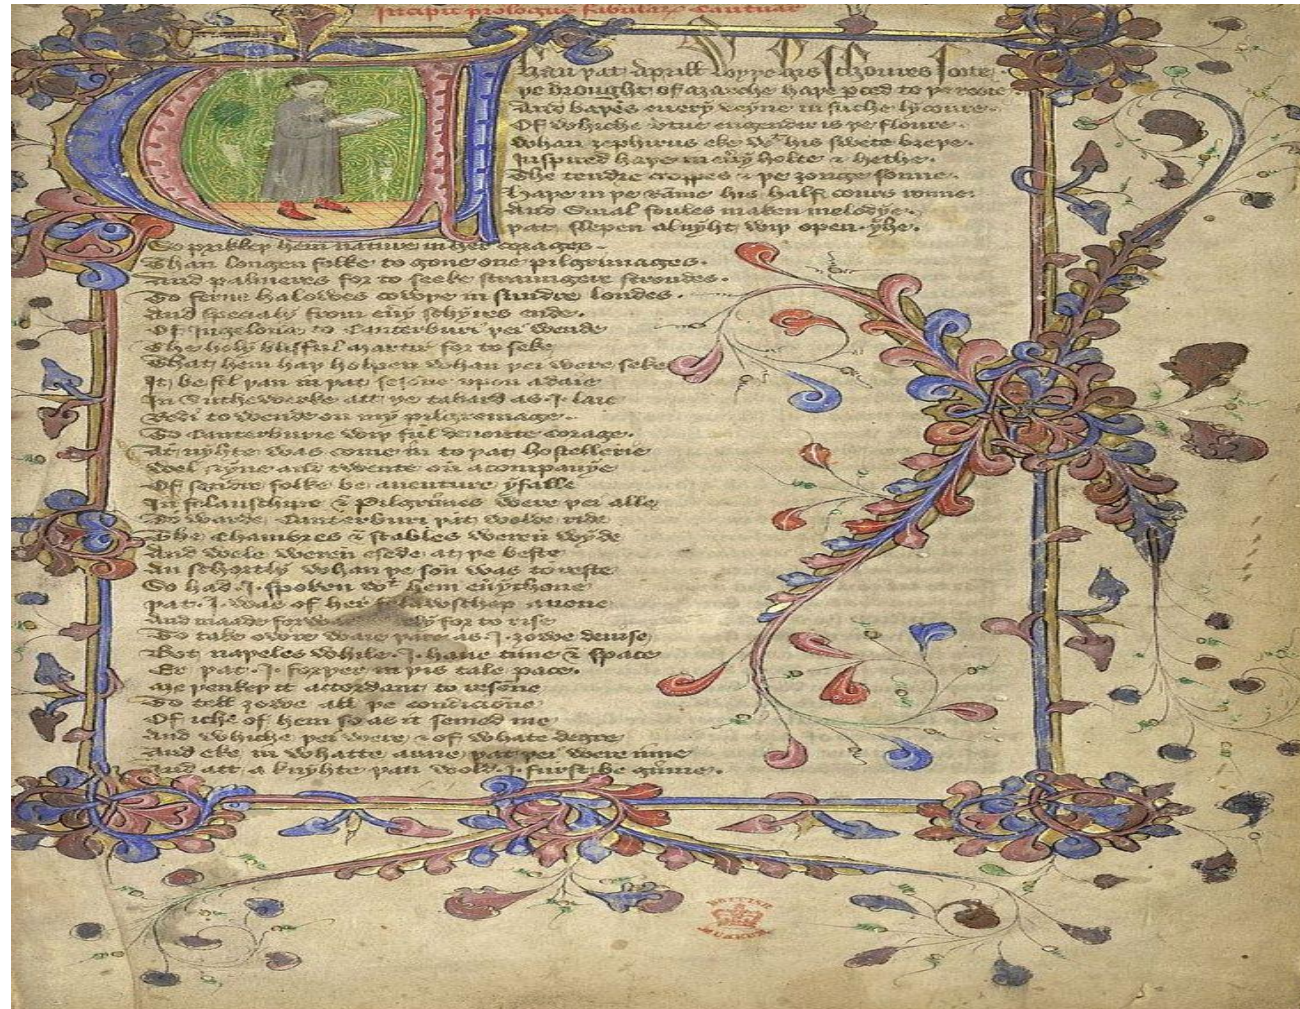 Incipit prologus fabularum Cantuar
Whan þat Aprill wyþe his schoures soote
þe drought of Marche haþe perced to þe roote
And baþes euery veyne in suche lycoure
Of whiche vertue engendred is þe floure
Whan zephirus eke wt his swete breþe
Inspired haþe in eūy holte & hethe
The tendre croppes & þe ȝonge sonne
Haþe in þe Ramme his half cours ronne
And Smal foules maken melodye
þat slepen al nyht wiþ open yhe
So prikkeþ hem nature in her corages
Than longen folke to gone one pilgrimages
And palmeres for to seeke straungere strondes
To ferne halowes cowþe in sundre londes
And specialy from eūy schyres ende
Of Ingelond to Canterburi þei wende
The holy blisful Martir for to seke
That hem haþ holpen whan þei were seke
It befil þan in þat sesone vpon a daie
In Suthewerke att þe tabard as .I. laie
Redi to wende on my pilgremage
To Canterburie wiþ ful deuoute corage
At nyhte was come in to þat hostellerie
Wel nyne and twente on a companye
Of sondre folke be auenture yfalle
In felauschipe & Pilgrimes were þei alle
To warde Canterburi þat wolde ride
The Chambres & stables weren wyde
And wele weren esede at þe beste
An schortly whan þe son was to reste
So had .I. spoken wt hem eūychone
þat .I. was of her felawschep anone
And maade forwarde erly for to rise
To take owre waie þare as .I. ȝowe deuise
Bot naþeles while .I. haue time & space
Er þat .I. forþer in þis tale pace
Me þenkeþ it accordant to resone
To tell ȝowe all þe condicione
Of iche of hem so as it semed me
And whiche þei were & of whate degre
And eke in whatte araie þat þei were inne
And att a knyhte þan wold .I. furst beginne
BRITISH MUSEUM